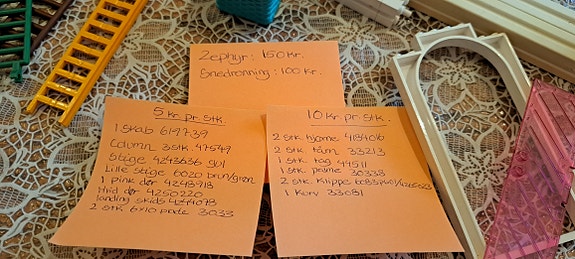 Zephyr: 150 kr.
Snedronning: 100 kr.
5 kr. pr. stk.
1 skab 619739
Column 3 stk. 47549
Stige 4243636 gul
Lille stige 6020 brun/grøn
1 pink dør 4248918
Hvid dør 4250220
landing skids 4244078
2 stk. 6x10 plade 3033
10 kr. pr. stk.
2 stk hjørne
2 stk tårn 33213
1 stk tag 44511
1 stk palme 30338
2 stk. Klippe
1 Kurv 33081